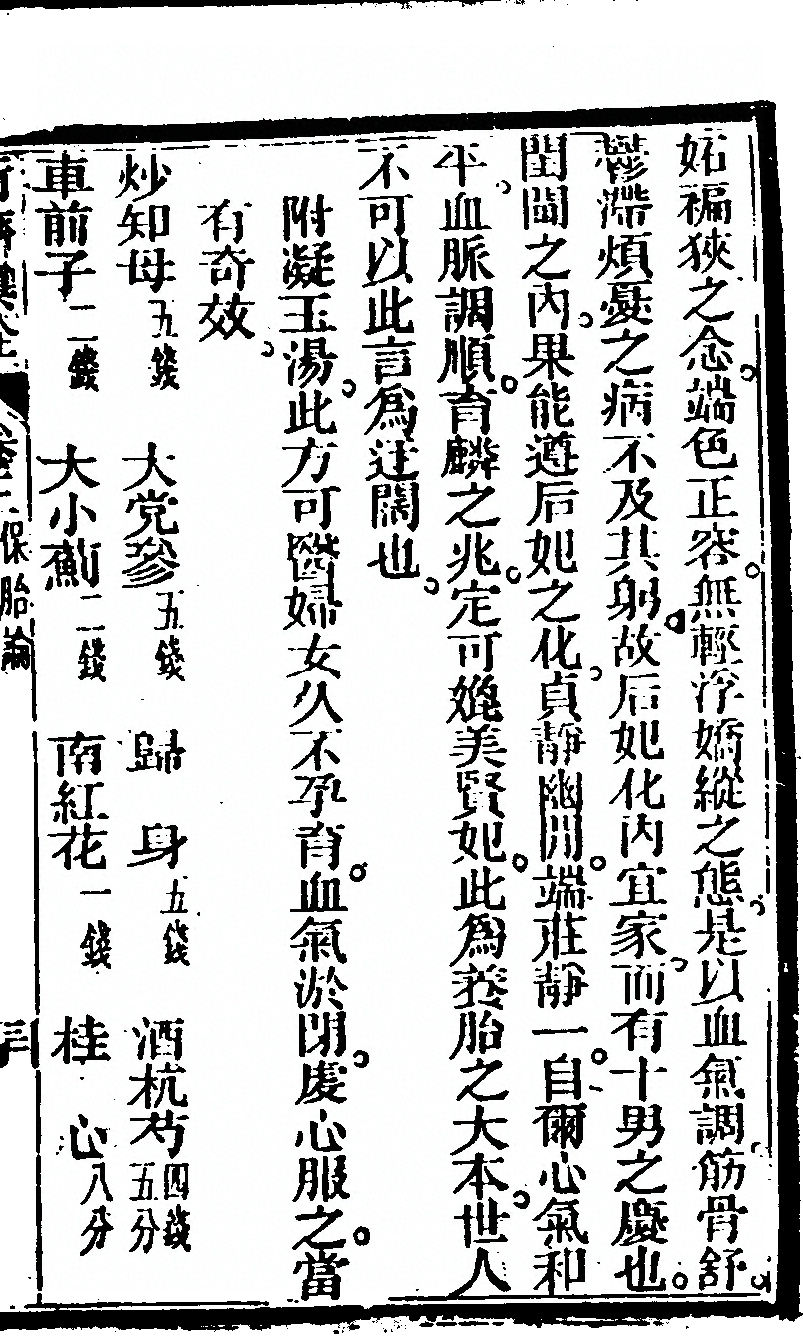 妬褊狹之念端色正容無輕浮嬌縱之態是以血氣調筋骨舒
鬱滯煩憂之病不及其躬故后妃化內宜家而有十男之慶也
閨閫之內果能遵后妃之化貞靜幽閒端莊靜一自爾心氣和
平血脈調順育麟之兆定可媲美賢妃此為養胎之大本世人
不可以此言為迂闊也
附凝玉湯此方可醫婦女久不孕育血氣淤閉虔心服之當
有奇效
炒知母五錢 大党參五錢 歸身五錢 酒杭芍四錢五分
車前子二錢 大小薊二錢 南紅花一錢 桂心八分
保胎論